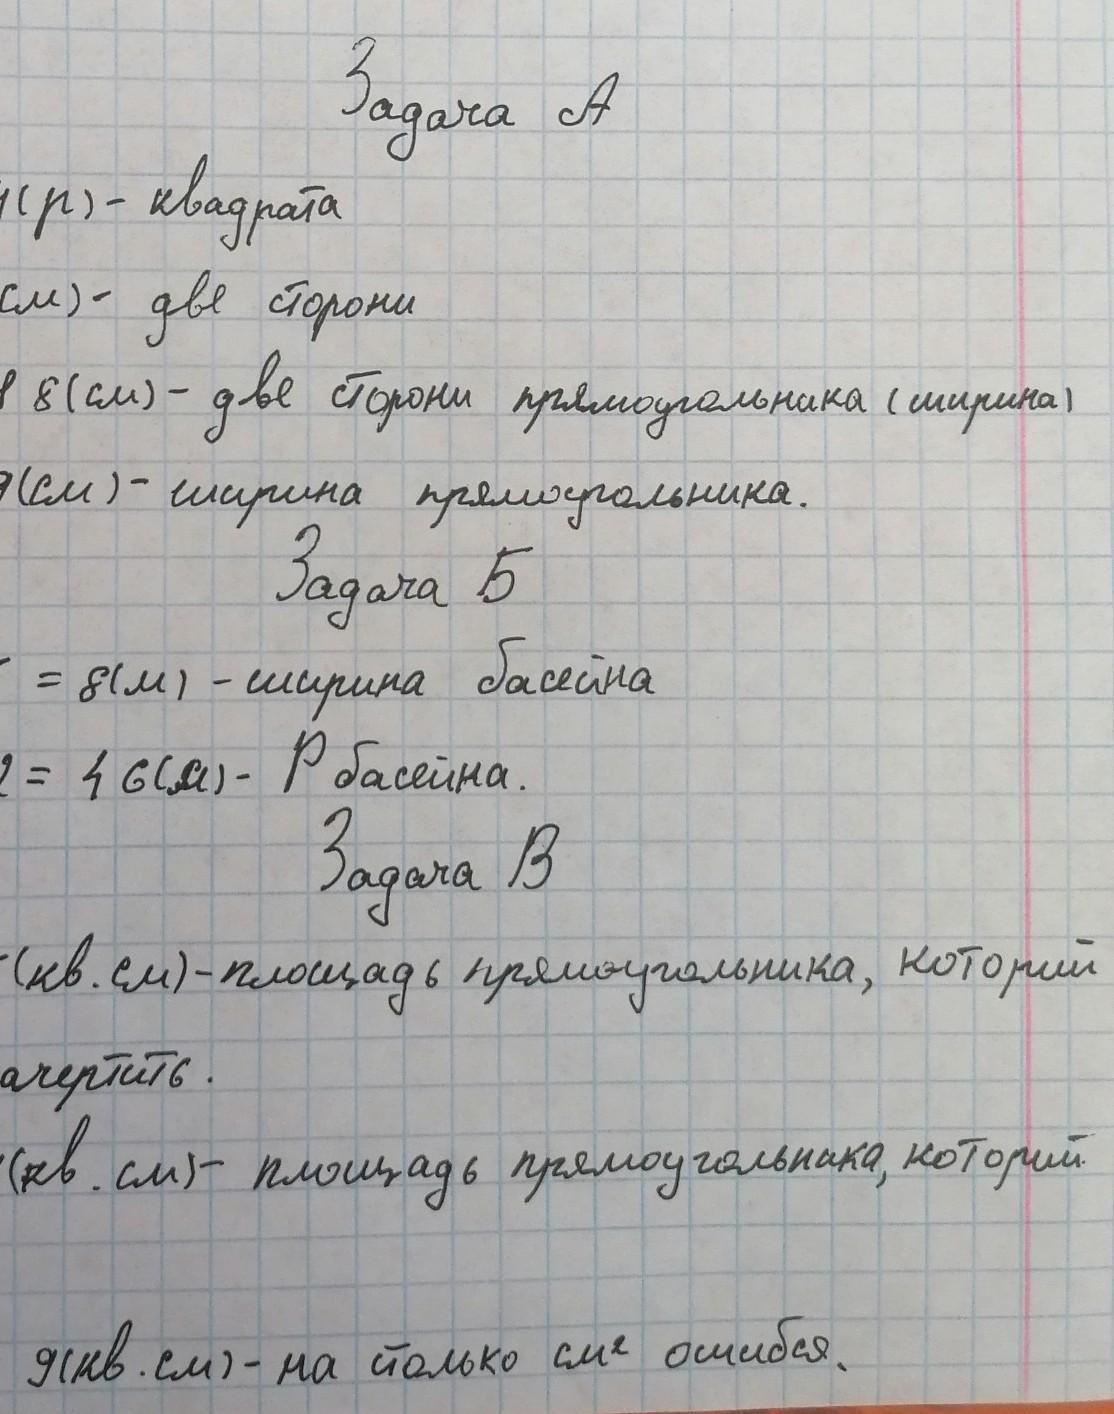 Задача А
(р) - квадрата
см) - две сторони
8(см) - две сторони прямоугольника (ширина)
9(см) - ширина прямоугольника.
Задача Б
= 8(м) - ширина басейна
2 = 46(м) - Р басейна.
Задача В
(кв. см) - площадь прямоугольника, который
ачертить.
(кв. см) - площадь прямоугольника, который
9(кв. см) - на столько см² ошибся.